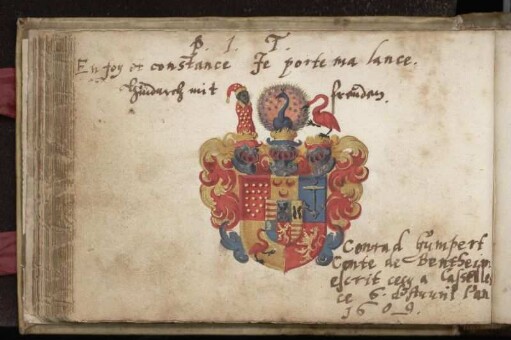 P. I. T.
En foy et constance Je porte ma lance.
hindurch mit freuden.
Conrad Gumpert
Conte de Benthem
escrit cecy a Cassell
ce 6. d'Avril l'an
1609.